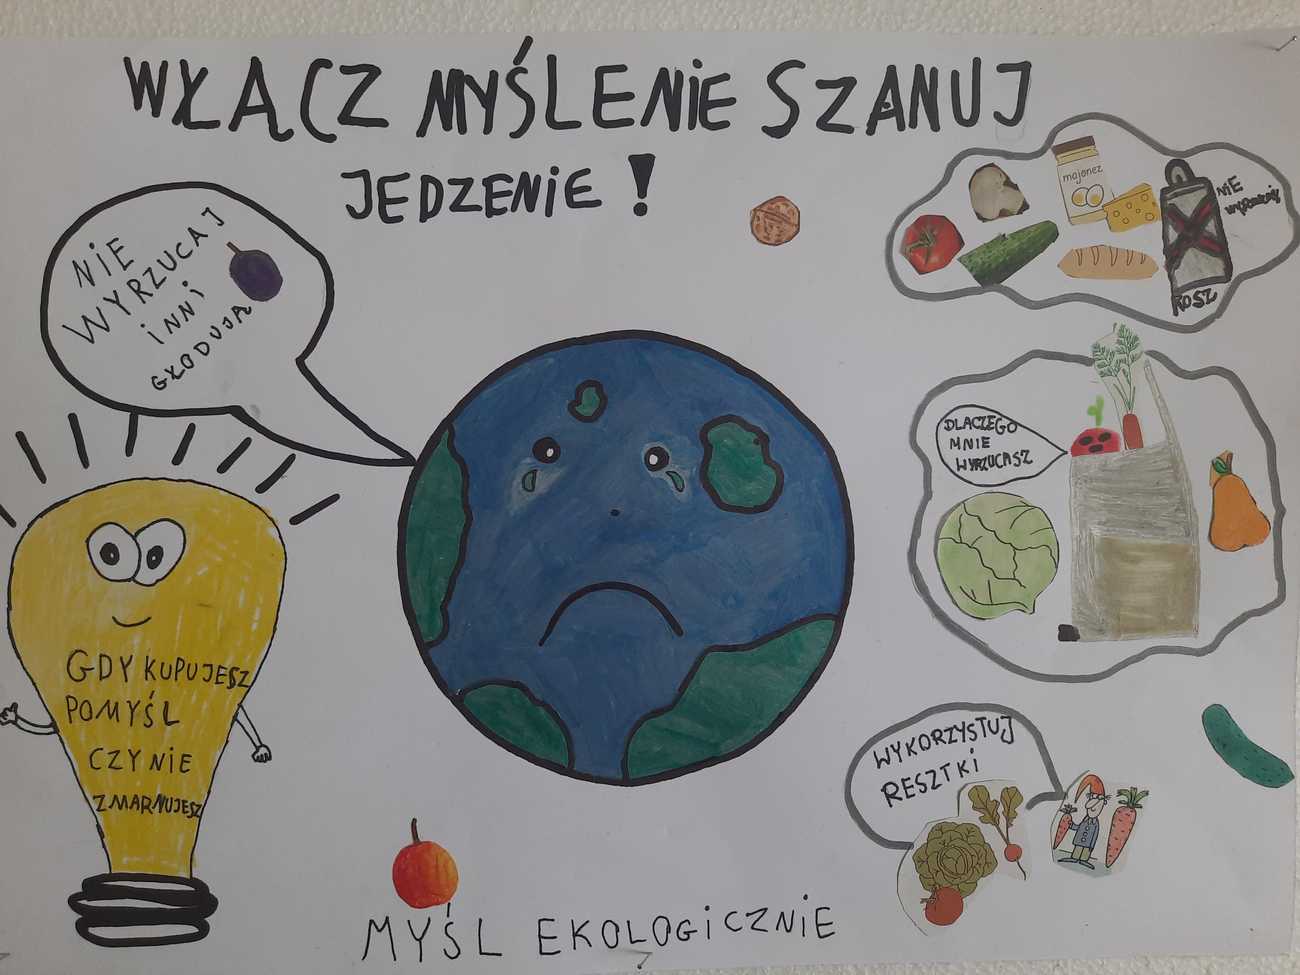 WŁĄCZ MYŚLENIE SZANUJ
JEDZENIE !
NIE
WYRZUCAJ
INNI
GŁODUJĄ
majonez
NIE
KOSZ
DLACZEGO
MNIE
WYRZUCASZ
GDY KUPUJESZ
POMYŚL
CZY NIE
ZMARNUJESZ
WYKORZYSTUJ
RESZTKI
MYŚL EKOLOGICZNIE